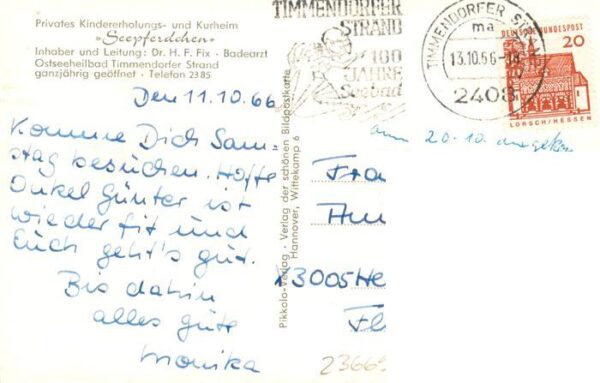 Privates Kindererholungs- und Kurheim
»Seepferdchen«
Inhaber und Leitung: Dr. H. F. Fix · Badearzt
Ostseeheilbad Timmendorfer Strand
ganzjährig geöffnet · Telefon 2385
Den 11.10.66
Komme Dich Sam-
stag besuchen. Hoffe
Onkel Günter ist
wieder fit und
Euch geht's gut.
Bis dahin
alles gute
Monika
Pikkolo-Verlag · Verlag der schönen Bildpostkarte
Hannover, Wittekamp 6
TIMMENDORFER
STRAND
100
JAHRE
Seebad
TIMMENDORFER
ma
13.10.66
2408
DEUTSCHE BUNDESPOST
20
LORSCH/HESSEN
am 20.10. angek.
Fra
3005 He
2366